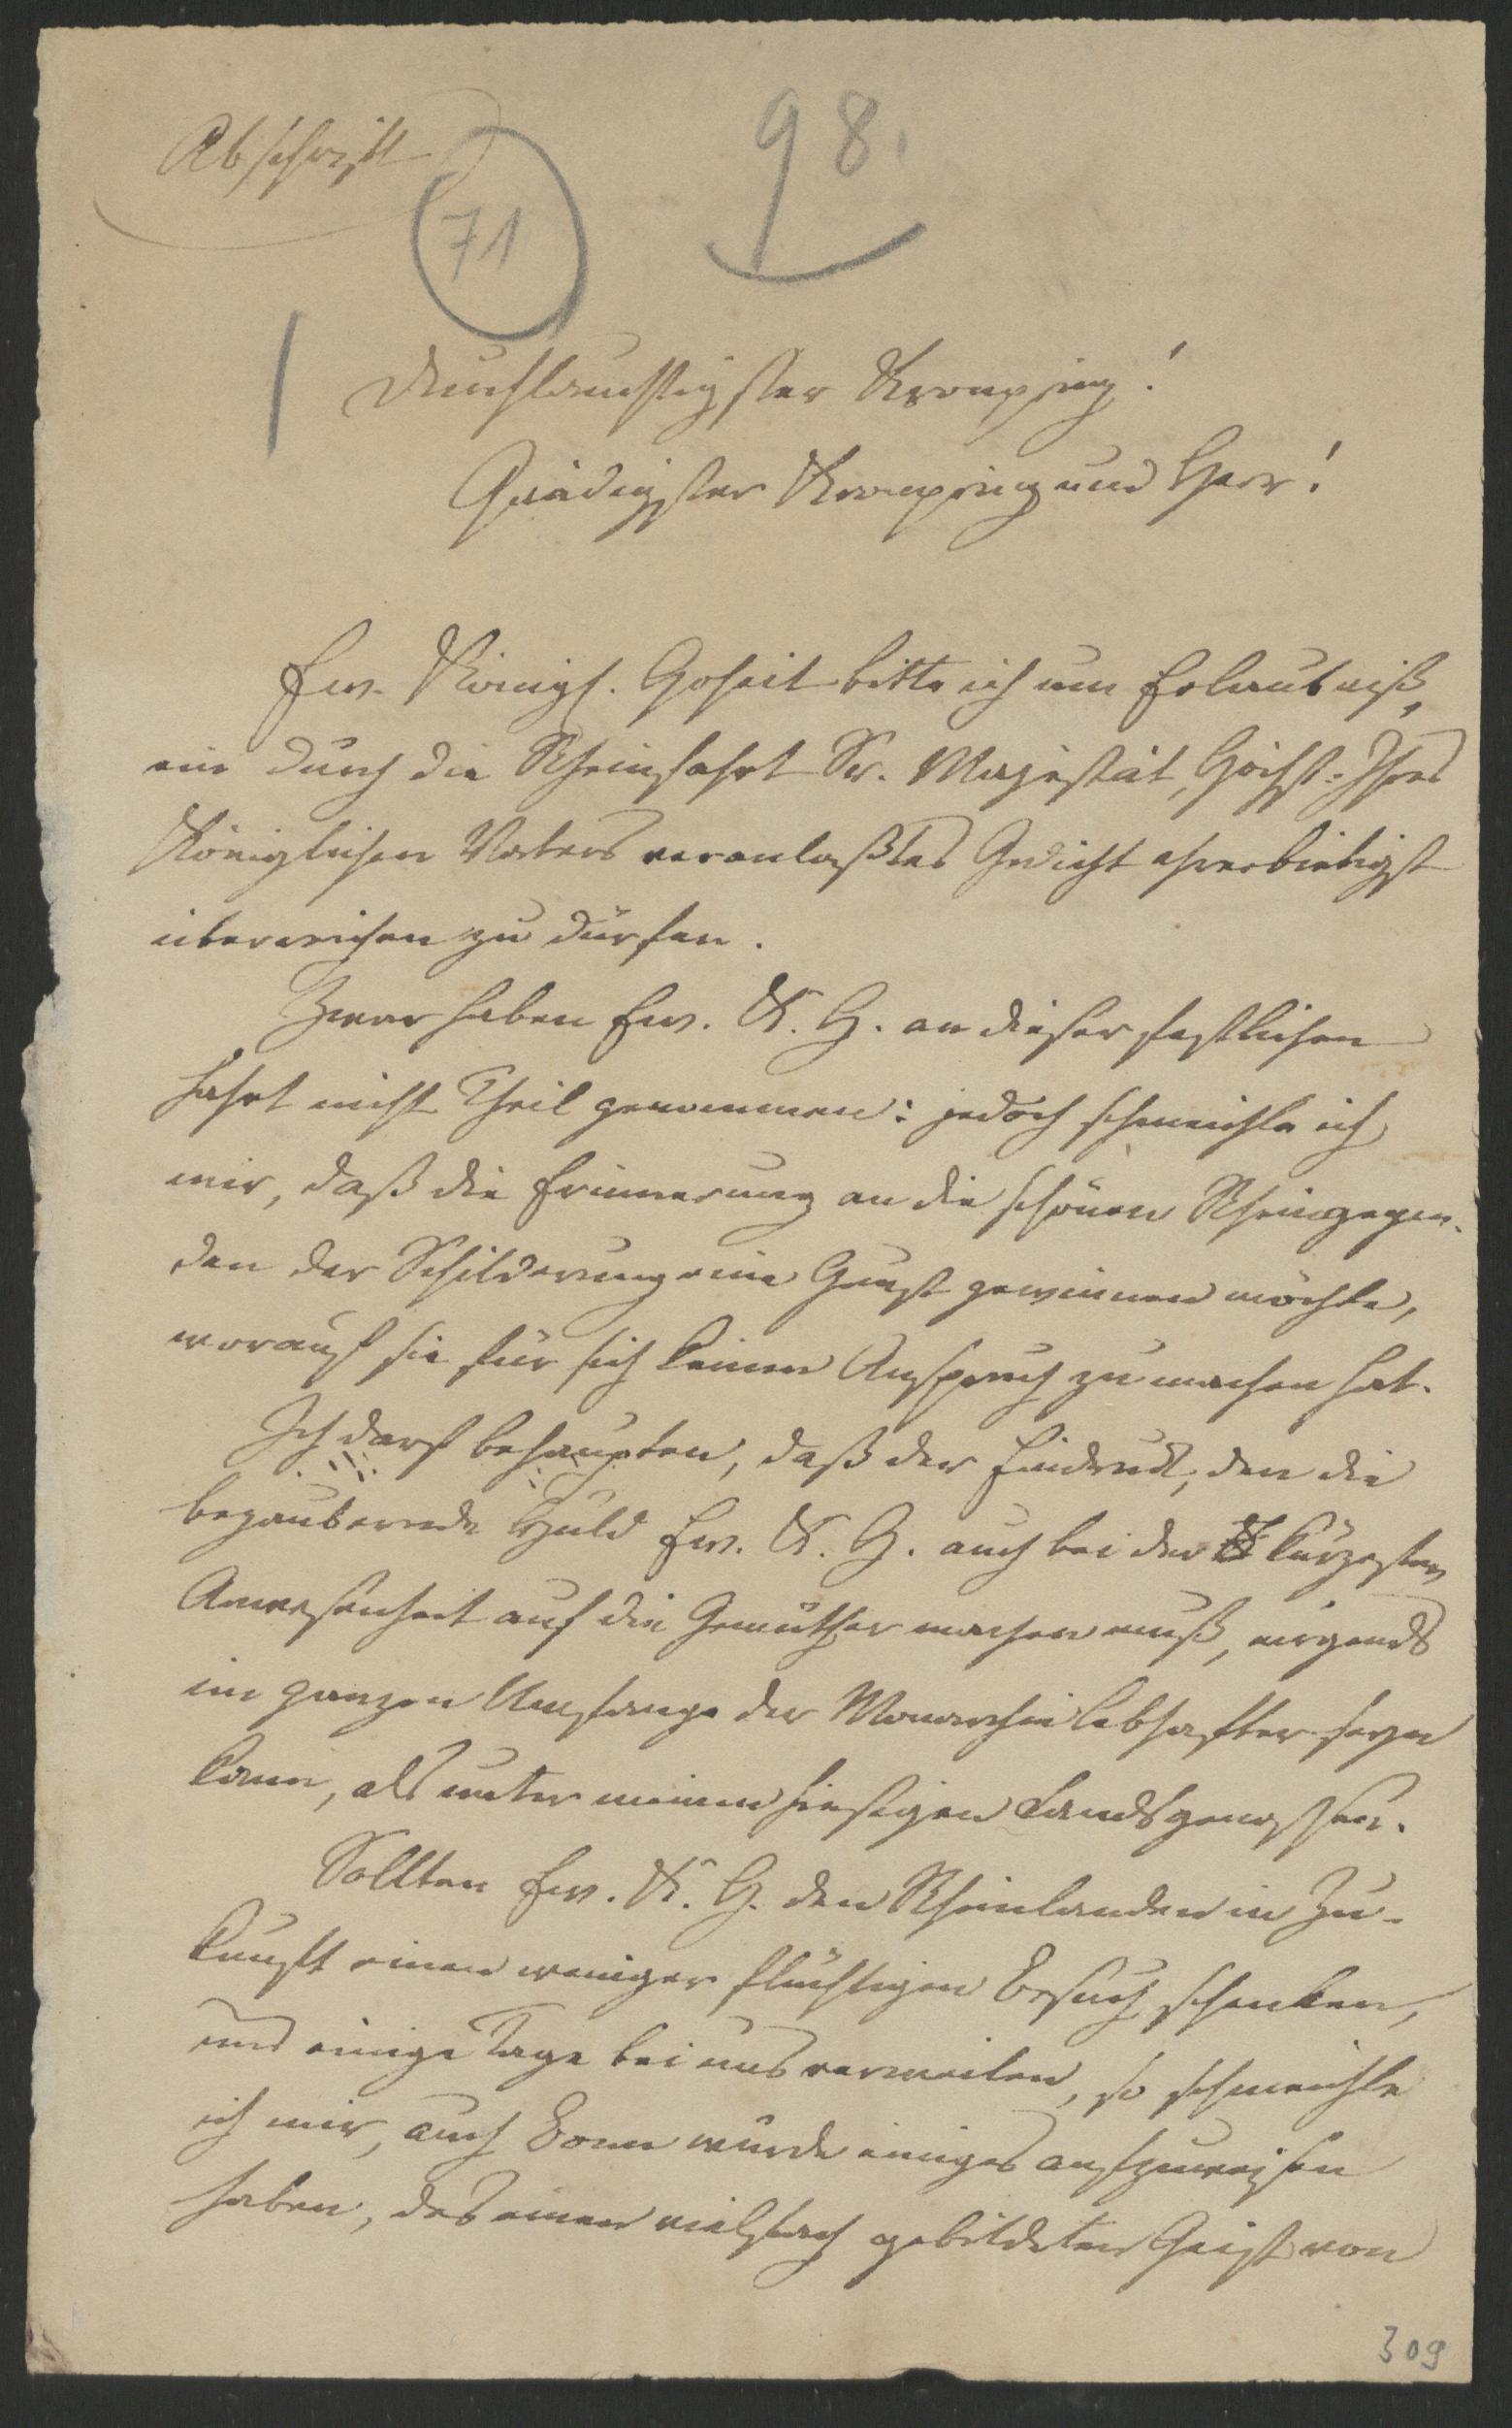 Abschrift
98.
71
Durchlauchtigster Kronprinz!
Gnädigster Kronprinz und Herr!
Ew. Königl. Hoheit bitte ich um Erlaubniß,
ein durch die Rheinfahrt Sr. Majestät, Höchst-Ihres
Königlichen Vaters veranlaßtes Gedicht ehrerbietigst
überreichen zu dürfen.
Zwar haben Ew. K. H. an dieser festlichen
Fahrt nicht Theil genommen: jedoch schmeichle ich
mir, daß die Erinnerung an die schönen Rheingegen-
den der Schilderung eine Gunst gewinnen möchte,
worauf sie für sich keinen Anspruch zu machen hat.
Ich darf behaupten, daß der Eindruck, den die
bezaubernde Huld Ew. K. H. auch bei der kürzesten
Anwesenheit auf die Gemüther machen muß, nirgends
im ganzen Umfange der Monarchie lebhafter seyn
kann, als unter meinen hiesigen Landsgenossen.
Sollten Ew. K. H. den Rheinlanden in Zu-
kunft einen weniger flüchtigen Besuch schenken,
und einige Tage bei uns verweilen, so schmeichle
ich mir, auch Bonn würde einiges aufzuweisen
haben, das einen vielfach gebildeten Geist von
309